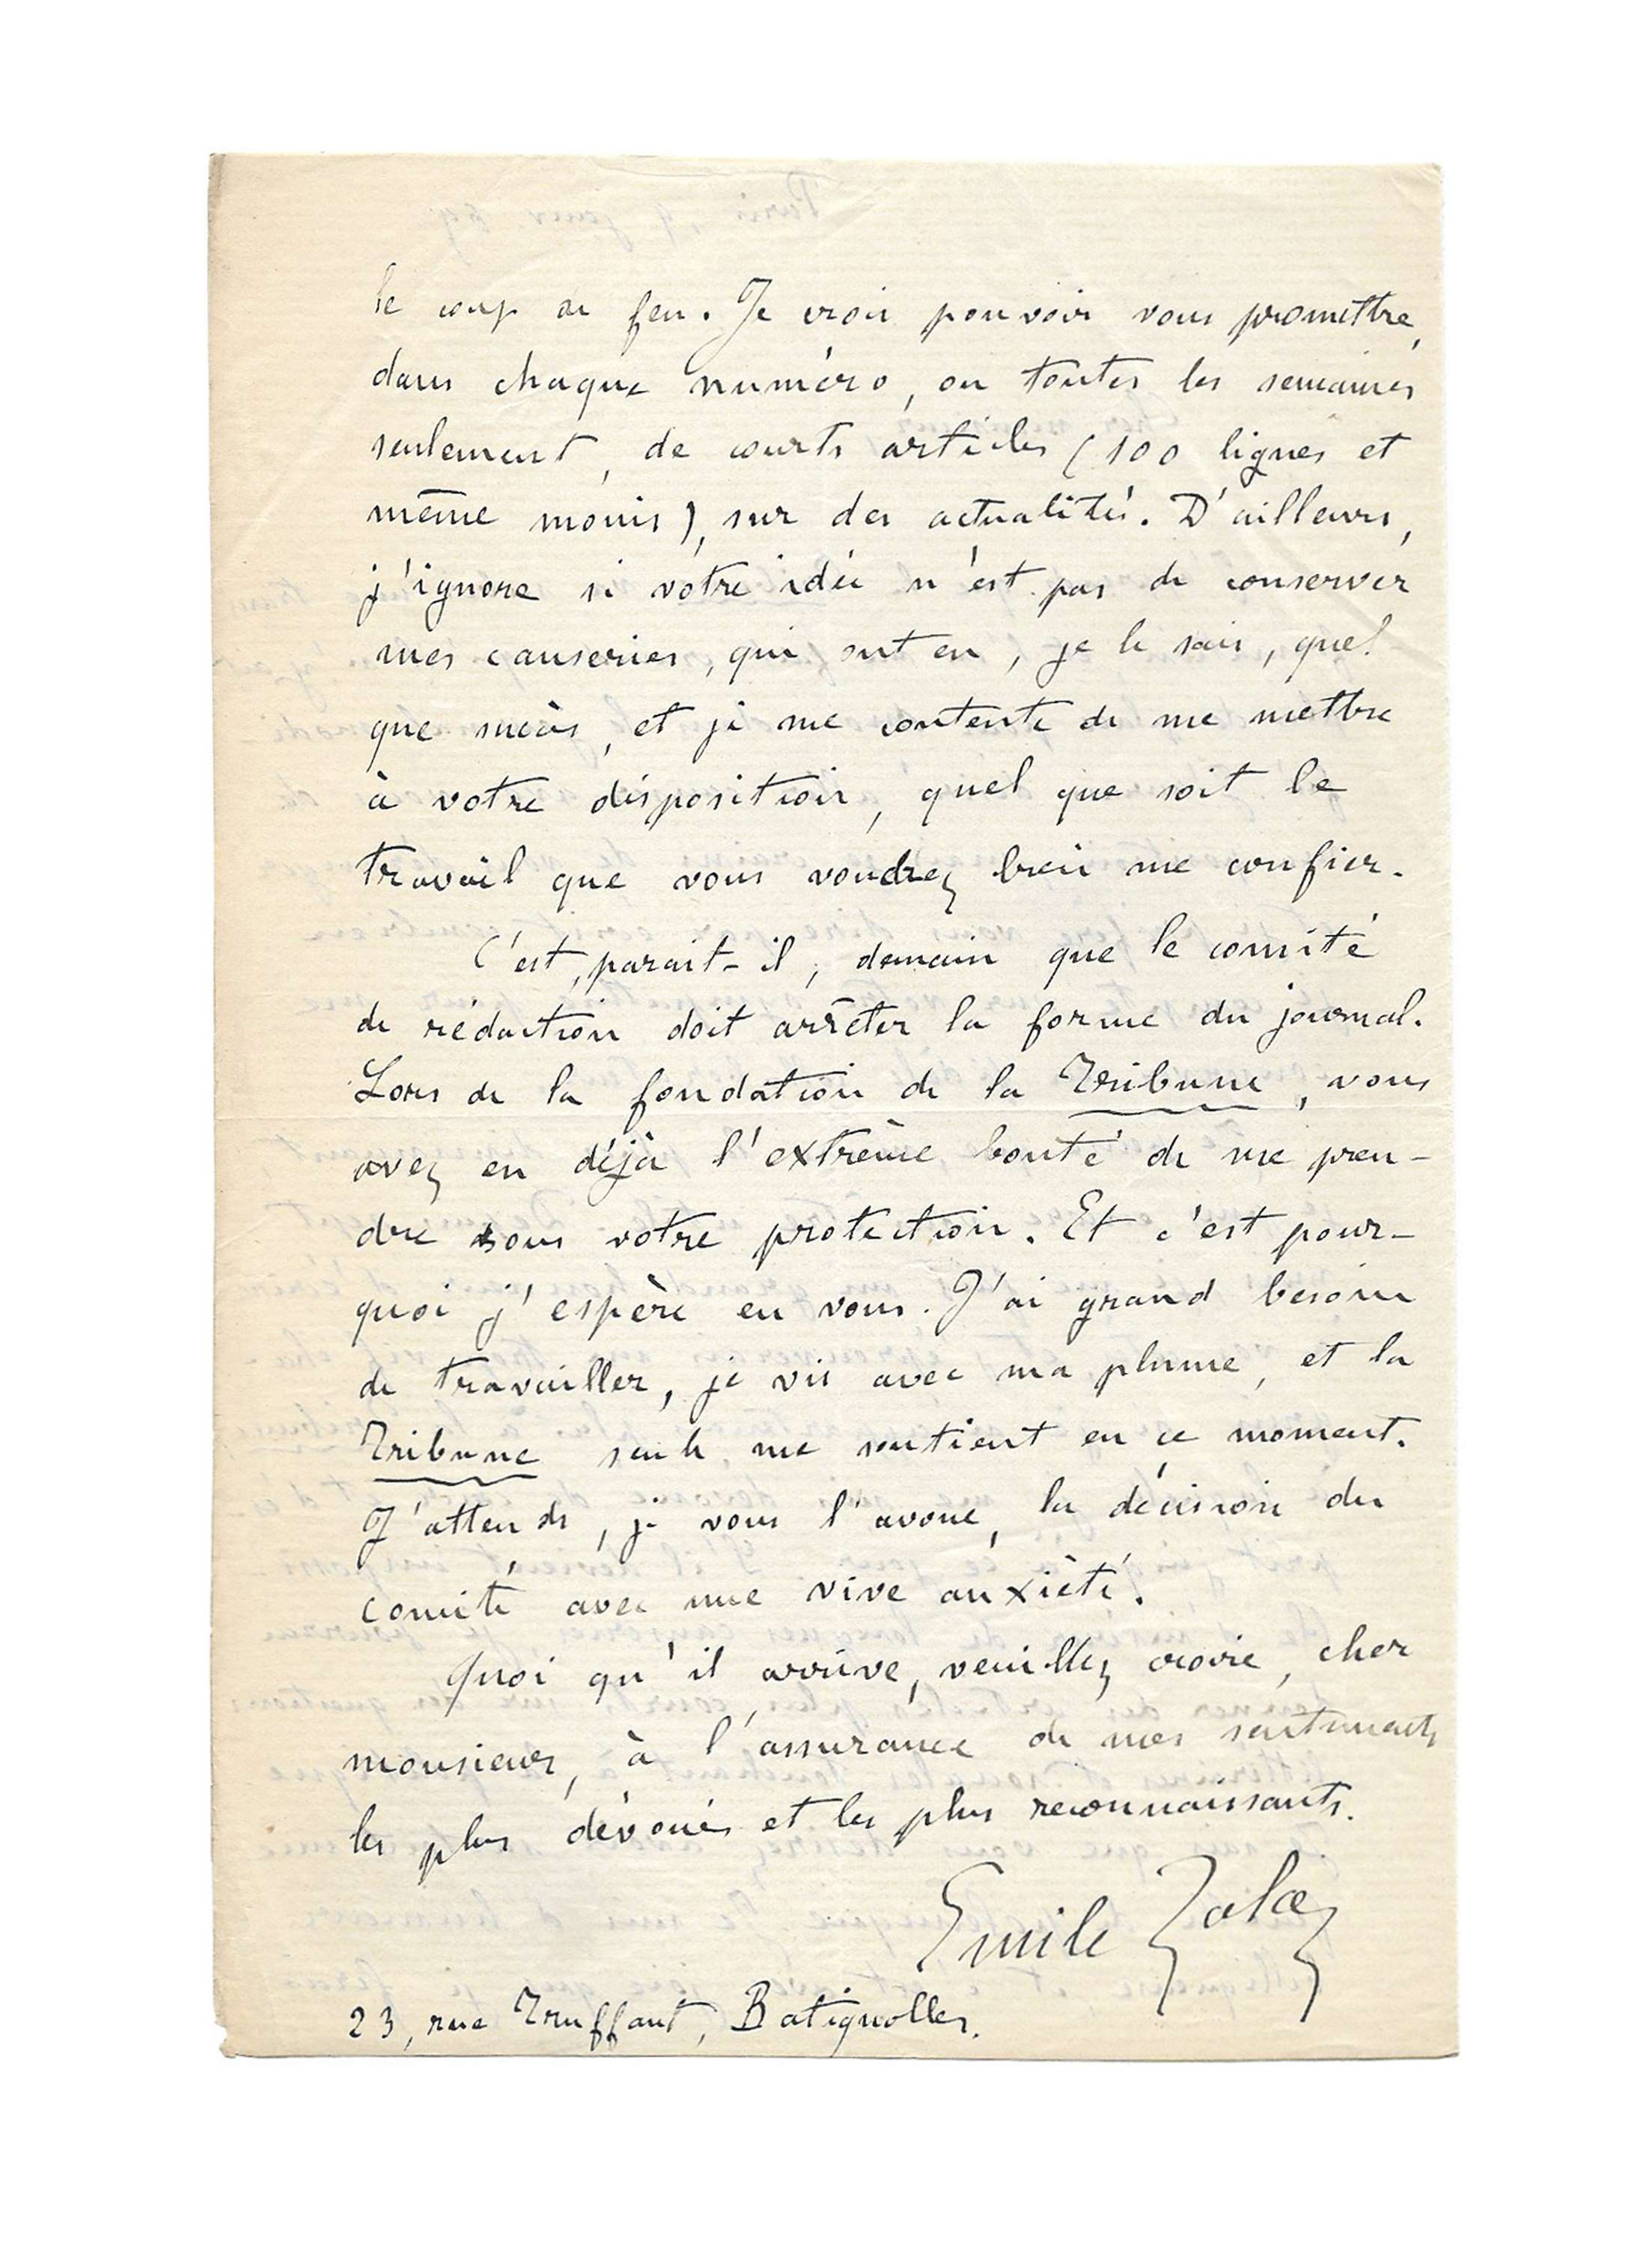 le coup de feu. Je crois pouvoir vous promettre,
dans chaque numéro, ou toutes les semaines
seulement, de courts articles (100 lignes et
même moins), sur des actualités. D'ailleurs,
j'ignore si votre idée n'est pas de conserver
mes causeries, qui ont eu, je le sais, quel
que succès, et je me contente de me mettre
à votre disposition, quel que soit le
travail que vous voudrez bien me confier.
C'est, parait-il, demain que le comité
de rédaction doit arrêter la forme du journal.
Lors de la fondation de la Tribune, vous
avez eu déjà l'extrême bonté de me pren-
dre sous votre protection. Et c'est pour-
quoi j'espère en vous. J'ai grand besoin
de travailler, je vis avec ma plume, et la
Tribune seule me soutient en ce moment.
J'attends, je vous l'avoue, la décision du
comité avec une vive anxiété.
Quoi qu'il arrive, veuillez croire, cher
monsieur, à l'assurance de mes sentiments
les plus dévoués et les plus reconnaissants.
Emile Zola
23, rue Truffaut, Batignolles.